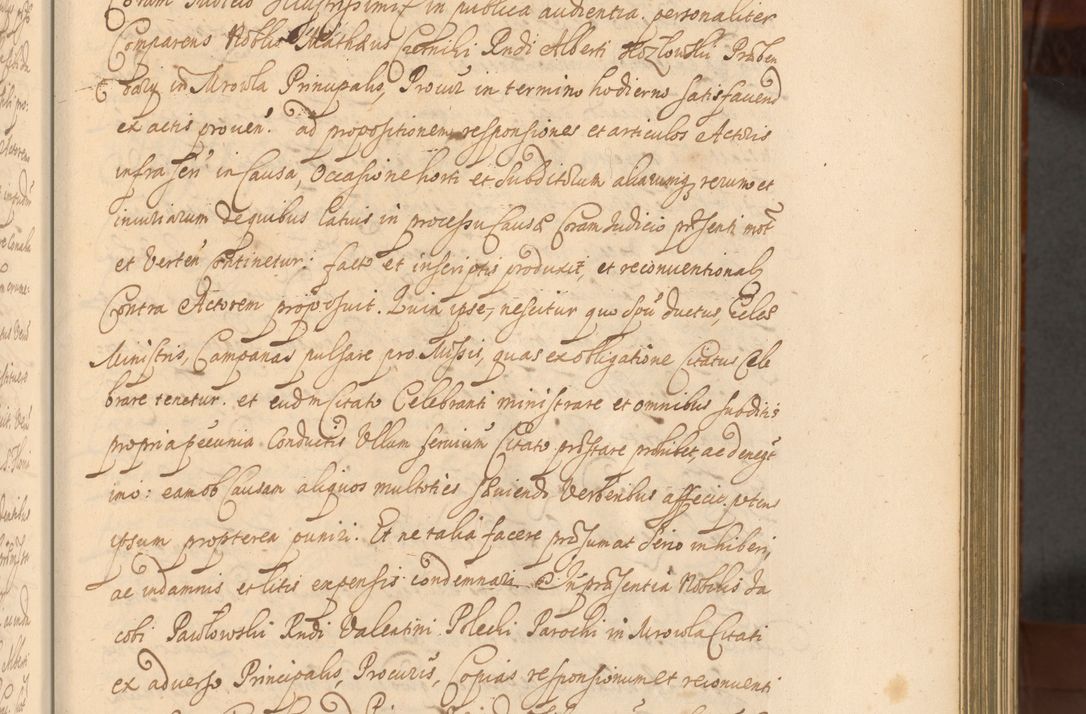 Coram Judicio Illustrissimi in publica audientia personaliter
Comparens Nobilis Mathæus Czernicki Rndi Alberti Kozłowski Præben
dary in Mrowla Principalis, Procur in termino hodierno satisfaciend
ex actis proven. ad propositionem responsiones et articulos Actoris
infra scri in Causa, Occasione horti et Subditorum aliarumq rerum et
iniuriarum de quibus latius in processu Causæ Coram Judicio præsenti mot
et verten continetur: facto et in scriptis produxit, et reconventional
Contra Actorem proposuit. Quia ipse, nescitur quo spu ductus, Eccles
Ministris, Campanas pulsare pro Missis, quas ex obligatione Citatus Cele
brare tenetur. et eudm Citato Celebranti ministrare et omnibus subditis
propria pecunia Conductis Ullum servium Citato præstare prohibet ac denegt
imo: eam ob Causam aliquos multoties serviendo Verberibus affecit. petens
ipsum propterea puniri. Et ne talia facere præsumat serio inhiberi,
ac in damnis et litis expensis condemnari. In præsentia Nobilis Ja
cobi Pawłowski Rndi Valentini Polecki Parochi in Mrowla Citati
ex adverso Principalis, Procuris, Copias responsionum et reconventi